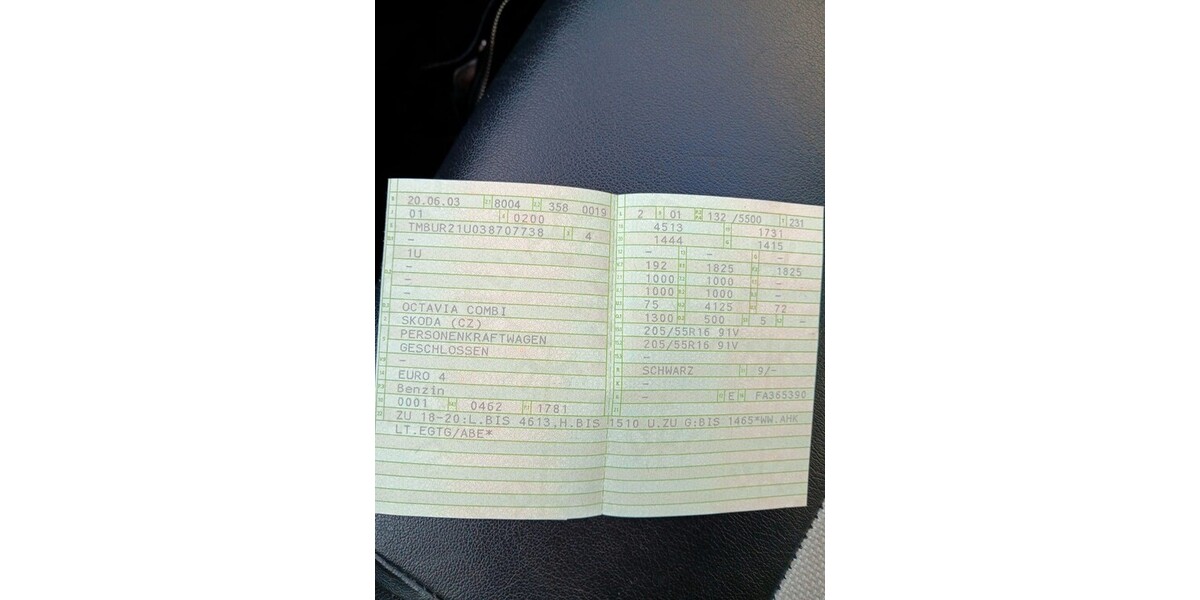 20.06.03 8004 358 0019
01 0200
TMBUR21U038707738 4
–
1U
–
–
–
OCTAVIA COMBI
SKODA (CZ)
PERSONENKRAFTWAGEN
GESCHLOSSEN
–
EURO 4
Benzin
0001 0462 1781
ZU 18-20:L.BIS 4613,H.BIS 1510 U.ZU G:BIS 1465*WW.AHK
LT.EGTG/ABE*
2 01 132 /5500 231
4513 1731
1444 1415
– – –
192 1825 1825
1000 1000 –
1000 1000 –
75 4125 72
1300 500 5 –
205/55R16 91V
205/55R16 91V
–
SCHWARZ 9/-
–
– E FA365390